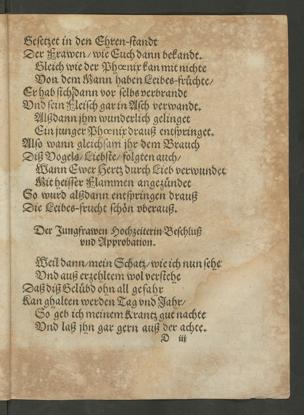 Gesetzet in den Ehren-standt
Der Frawen / wie Euch dann bekandt.
Gleich wie der Phœnix kan mit nichte
Von dem Mann haben Leibes-früchte /
Er hab sich dann vor selbs verbrandt
Vnd sein Fleisch gar in Asch verwandt.
Alßdann jhm wunderlich gelinget
Ein junger Phœnix drauß entspringet.
Also wann gleichsam jhr dem Brauch
Diß Vogels / Liebste / folgten auch /
Wann Ewer Hertz durch Lieb verwundet
Mit heisser Flammen angezündet
So wurd alßdann entspringen drauß
Die Leibes-frucht schön vberauß.
Der Jungfrawen Hochzeiterin Beschluß
vnd Approbation.
Weil dann / mein Schatz / wie ich nun sehe
Vnd auß erzehltem wol verstehe
Daß diß Gelübd ohn all gefahr
Kan ghalten werden Tag vnd Jahr /
So geb ich meinem Krantz gut nachte
Vnd laß jhn gar gern auß der achte.
D iij